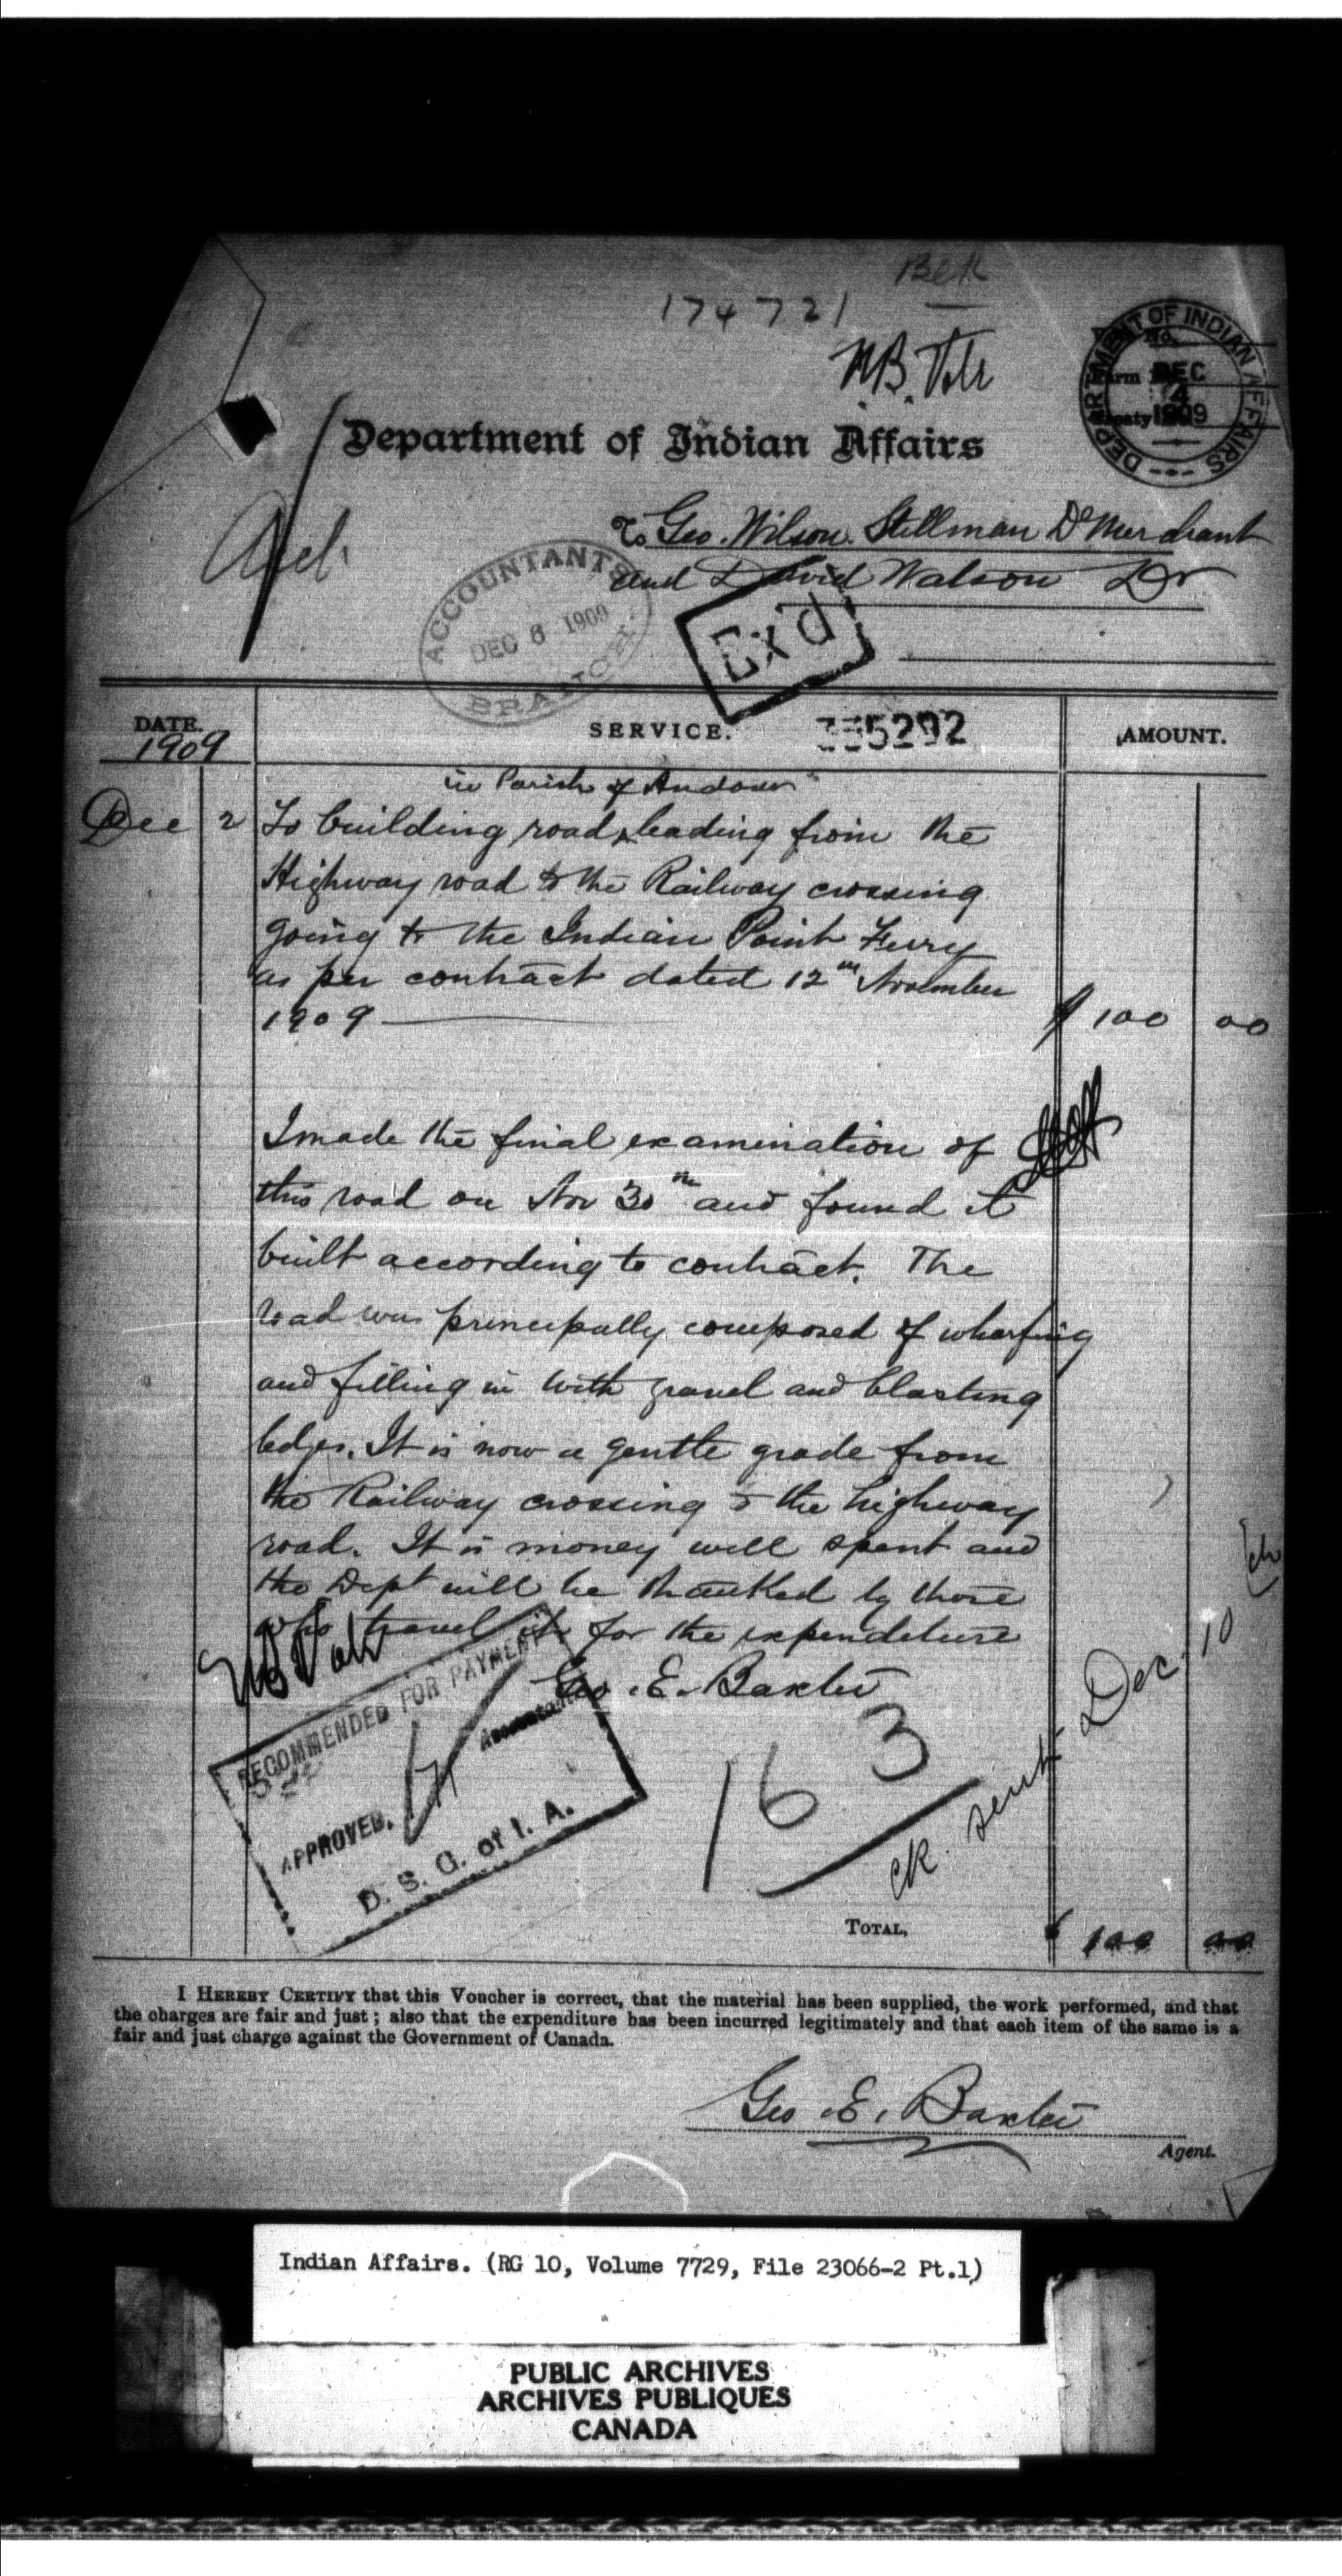 174721
N.B. Vote
DEPARTMENT OF INDIAN AFFAIRS
No.
DEC
4
1909
Department of Indian Affairs
To Geo. Wilson. Stillman DeMerchant
and David Watson Dr
ACCOUNTANTS
DEC 6 1909
BRANCH.
Ex'd
DATE.
1909
SERVICE.
5292
AMOUNT.
in Parish of Andover
Dec 2 To building road leading from the
Highway road to the Railway crossing
going to the Indian Point Ferry
as per contract dated 12th November
1909 $ 100 00
I made the final examination of
this road on Nov 30th and found it
built according to contract. The
road was principally composed of wharfing
and filling in with gravel and blasting
ledges. It is now a gentle grade from
the Railway crossing to the highway
road. It is money well spent and
the Dept will be thanked by those
who travel it for the expenditure
Geo. E. Baxter
NB Vote
RECOMMENDED FOR PAYMENT
Accountant
APPROVED.
D. S. G. of I. A.
163
ck. sent Dec. 10
TOTAL, $ 100 00
I HEREBY CERTIFY that this Voucher is correct, that the material has been supplied, the work performed, and that
the charges are fair and just; also that the expenditure has been incurred legitimately and that each item of the same is a
fair and just charge against the Government of Canada.
Geo. E. Baxter
Agent.
Indian Affairs. (RG 10, Volume 7729, File 23066-2 Pt.1)
PUBLIC ARCHIVES
ARCHIVES PUBLIQUES
CANADA